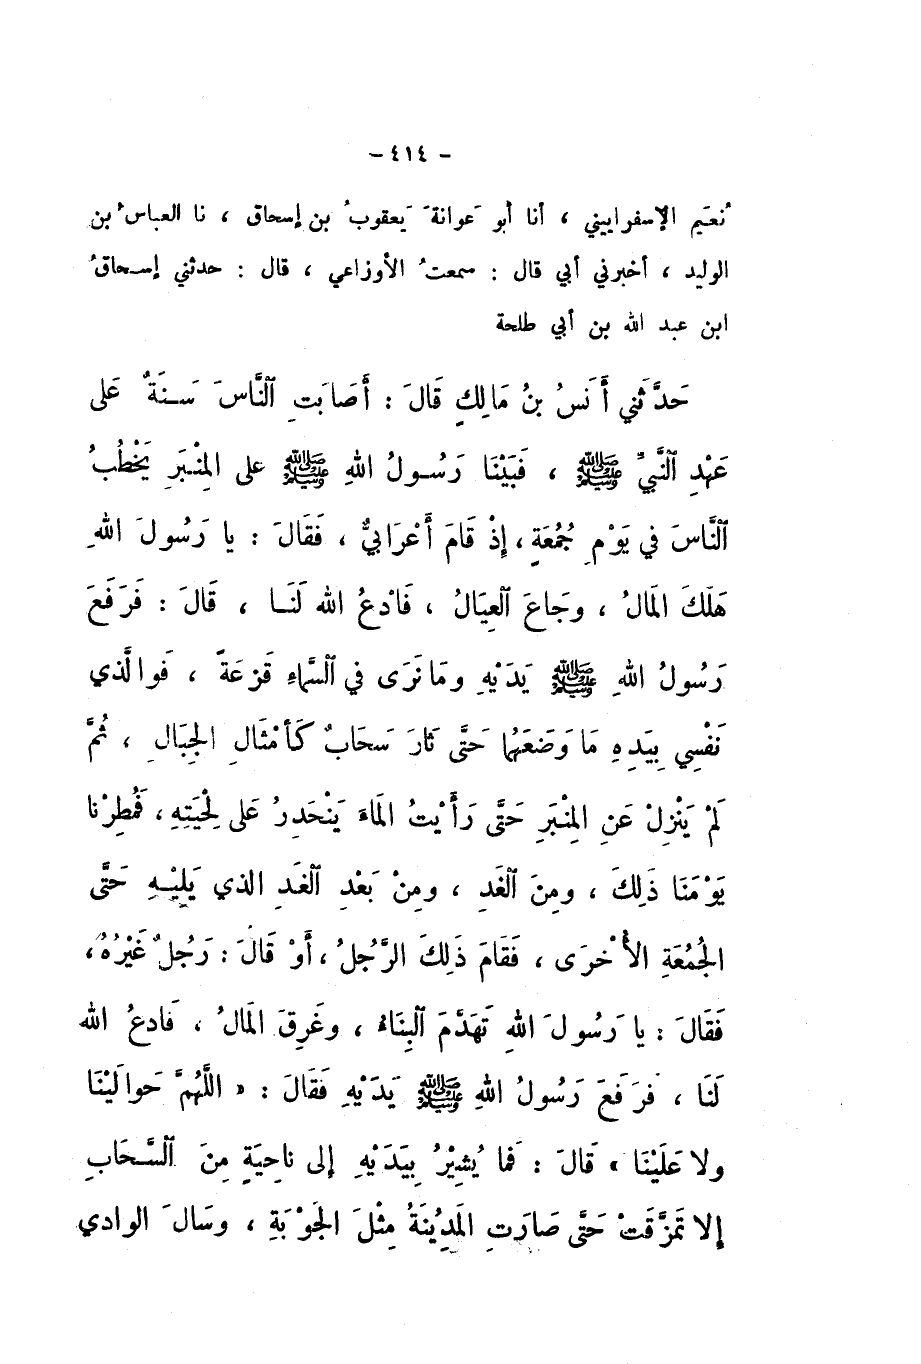 - ٤١٤ -
نُعَيم الإسفراييني ، أنا أبو عَوانةَ يَعقوبُ بن إسحاق ، نا العباسُ بن
الوليد ، أخبرني أبي قال : سمعتُ الأوزاعي ، قال : حدثني إسحاقُ
ابن عبد الله بن أبي طلحة
حَدَّثني أَنَسُ بنُ مَالِكٍ قَالَ : أَصَابَتِ ٱلنَّاسَ سَنَةٌ عَلى
عَهْدِ ٱلنَّبيِّ ﷺ ، فَبَيْنَا رَسُولُ اللهِ ﷺ على المِنْبَرِ يَخْطُبُ
ٱلنَّاسَ في يَوْمِ جُمُعَةٍ ، إِذْ قَامَ أَعْرَابيٌّ ، فَقَالَ : يا رَسُولَ اللهِ
هَلَكَ المَالُ ، وجَاعَ ٱلعِيَالُ ، فَادْعُ الله لَنَا ، قَالَ : فَرَفَعَ
رَسُولُ اللهِ ﷺ يَدَيْهِ ومَا نَرَى في ٱلسَّماءِ قَزَعَةً ، فَوالَّذي
نَفْسِي بِيَدِهِ مَا وَضَعَهُما حَتَّى ثَارَ سَحَابٌ كَأَمْثَالِ الجِبَالِ ، ثُمَّ
لَمْ يَنْزِلْ عَنِ المِنْبَرِ حَتَّى رَأَيْتُ المَاءَ يَنْحَدِرُ عَلى لِحْيَتِهِ ، فَمُطِرْنا
يَوْمَنَا ذَلِكَ ، ومِنَ ٱلغَدِ ، ومِنْ بَعْدِ ٱلغَدِ الذي يَلِيْهِ حَتَّى
الجُمُعَةِ الأُخْرَى ، فَقَامَ ذَلِكَ الرَّجُلُ ، أَوْ قَالَ : رَجُلٌ غَيْرُهُ ،
فَقَالَ : يا رَسُولَ اللهِ تَهَدَّمَ ٱلبِنَاءُ ، وغَرِقَ المَالُ ، فَادعُ الله
لَنَا ، فَرَفَعَ رَسُولُ اللهِ ﷺ يَدَيْهِ فَقَالَ : « اللَّهُمَّ حَوالَيْنَا
ولا عَلَيْنَا » قَالَ : فَما يُشِيْرُ بِيَدَيْهِ إلى ناحِيَةٍ مِنَ ٱلسَّحَابِ
إلا تَمَزَّقَتْ حَتَّى صَارَتِ المَدِيْنَةُ مِثْلَ الجَوْبَةِ ، وسَالَ الوادي